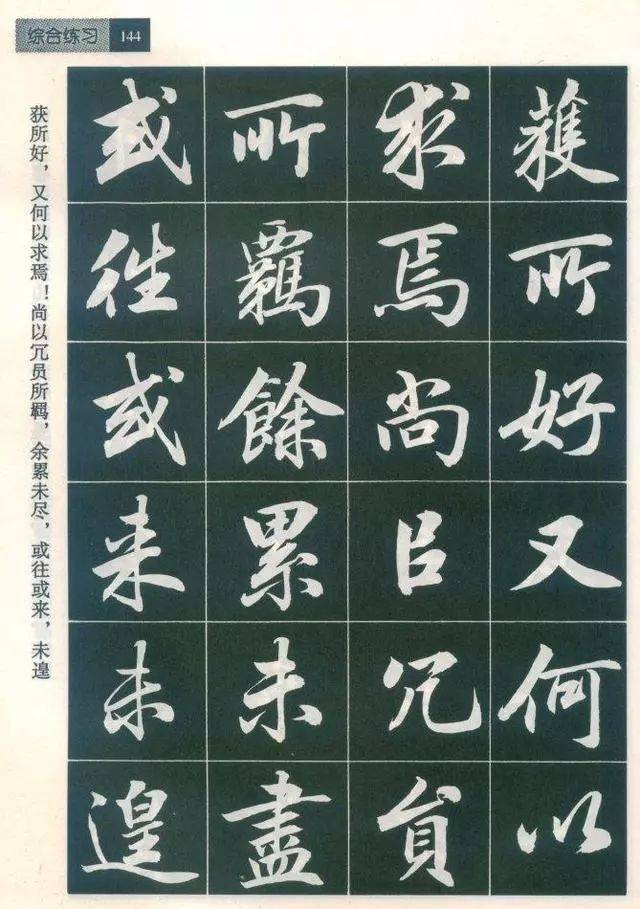 综合练习 144
獲所好又何以
求焉尚㠯冗員
所羈餘累未盡
或往或来未遑
获所好，又何以求焉！尚以冗员所羁，余累未尽，或往或来，未遑